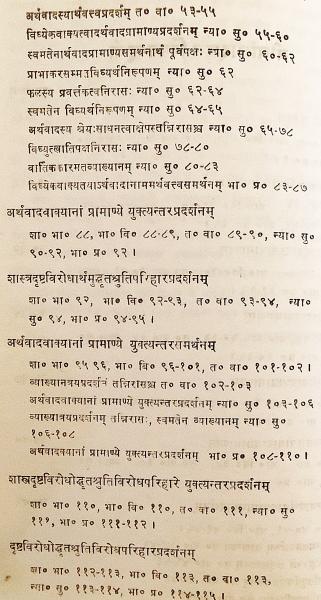 अर्थवादस्यार्थवत्त्वप्रदर्शनम् त० वा० ५३-५५
विध्येकवाक्यत्वादर्थवादप्रामाण्यप्रदर्शनम् न्या० सु० ५५-६०
स्वमतेनार्थवादप्रामाण्यसमर्थनार्थं पूर्वपक्षः न्या० सु० ६०-६२
प्राभाकरसम्मतविध्यर्थनिरूपणम् न्या० सु० ६२
फलस्य प्रवर्त्तकत्वनिरासः न्या० सु० ६२-६४
स्वमतेन विध्यर्थनिरूपणम् न्या० सु० ६४-६५
अर्थवादस्य श्रेयःसाधनत्वाक्षेपस्तन्निरासश्च न्या० सु० ६५-७८
विध्युत्खातिपक्षनिरासः न्या० सु० ७८-८०
वार्तिककारमतव्याख्यानम् न्या० सु० ८०-८३
विध्येकवाक्यतयाऽर्थवादानामर्थवत्त्वसमर्थनम् भा० प्र० ८३-८७
अर्थवादवाक्यानां प्रामाण्ये युक्त्यन्तरप्रदर्शनम्
शा० भा० ८८, भा० वि० ८८-८९, त० वा० ८९-९०, न्या० सु०
९०-९२, भा० प्र० ९२ ।
शास्त्रदृष्टविरोधार्थमुद्धृतश्रुतिपरिहारप्रदर्शनम्
शा० भा० ९२, भा० वि० ९२-९३, त० वा० ९३-९४, न्या०
सु० ९४, भा० प्र० ९४-९५ ।
अर्थवादवाक्यानां प्रामाण्ये युक्त्यन्तरसमर्थनम्
शा० भा० ९५ ९६, भा० वि० ९६-१०१, त० वा० १०१-१०२ ।
व्याख्यानत्रयप्रदर्शनं तन्निरासश्च त० वा० १०२-१०३
अर्थवादवाक्यानां प्रामाण्ये युक्त्यन्तरप्रदर्शनम् न्या० सु० १०३-१०६
व्याख्यात्रयप्रदर्शनम् तन्निरासः, स्वमतेन व्याख्यानम् न्या० सु०
१०६-१०८
अर्थवादवाक्यानां प्रामाण्ये युक्त्यन्तरप्रदर्शनम् भा० प्र० १०८-११० ।
शास्त्रदृष्टविरोधोद्धृतश्रुतिविरोधपरिहारे युक्त्यन्तरप्रदर्शनम्
शा० भा० ११०, भा० वि० ११०, त० वा० १११, न्या० सु०
१११, भा० प्र० १११-११२ ।
दृष्टविरोधोद्धृतश्रुतिविरोधपरिहारप्रदर्शनम्
शा० भा० ११२-११३, भा० वि० ११३, त० वा० ११३,
न्या० सु० ११३-११४, भा० प्र० ११४-११५ ।